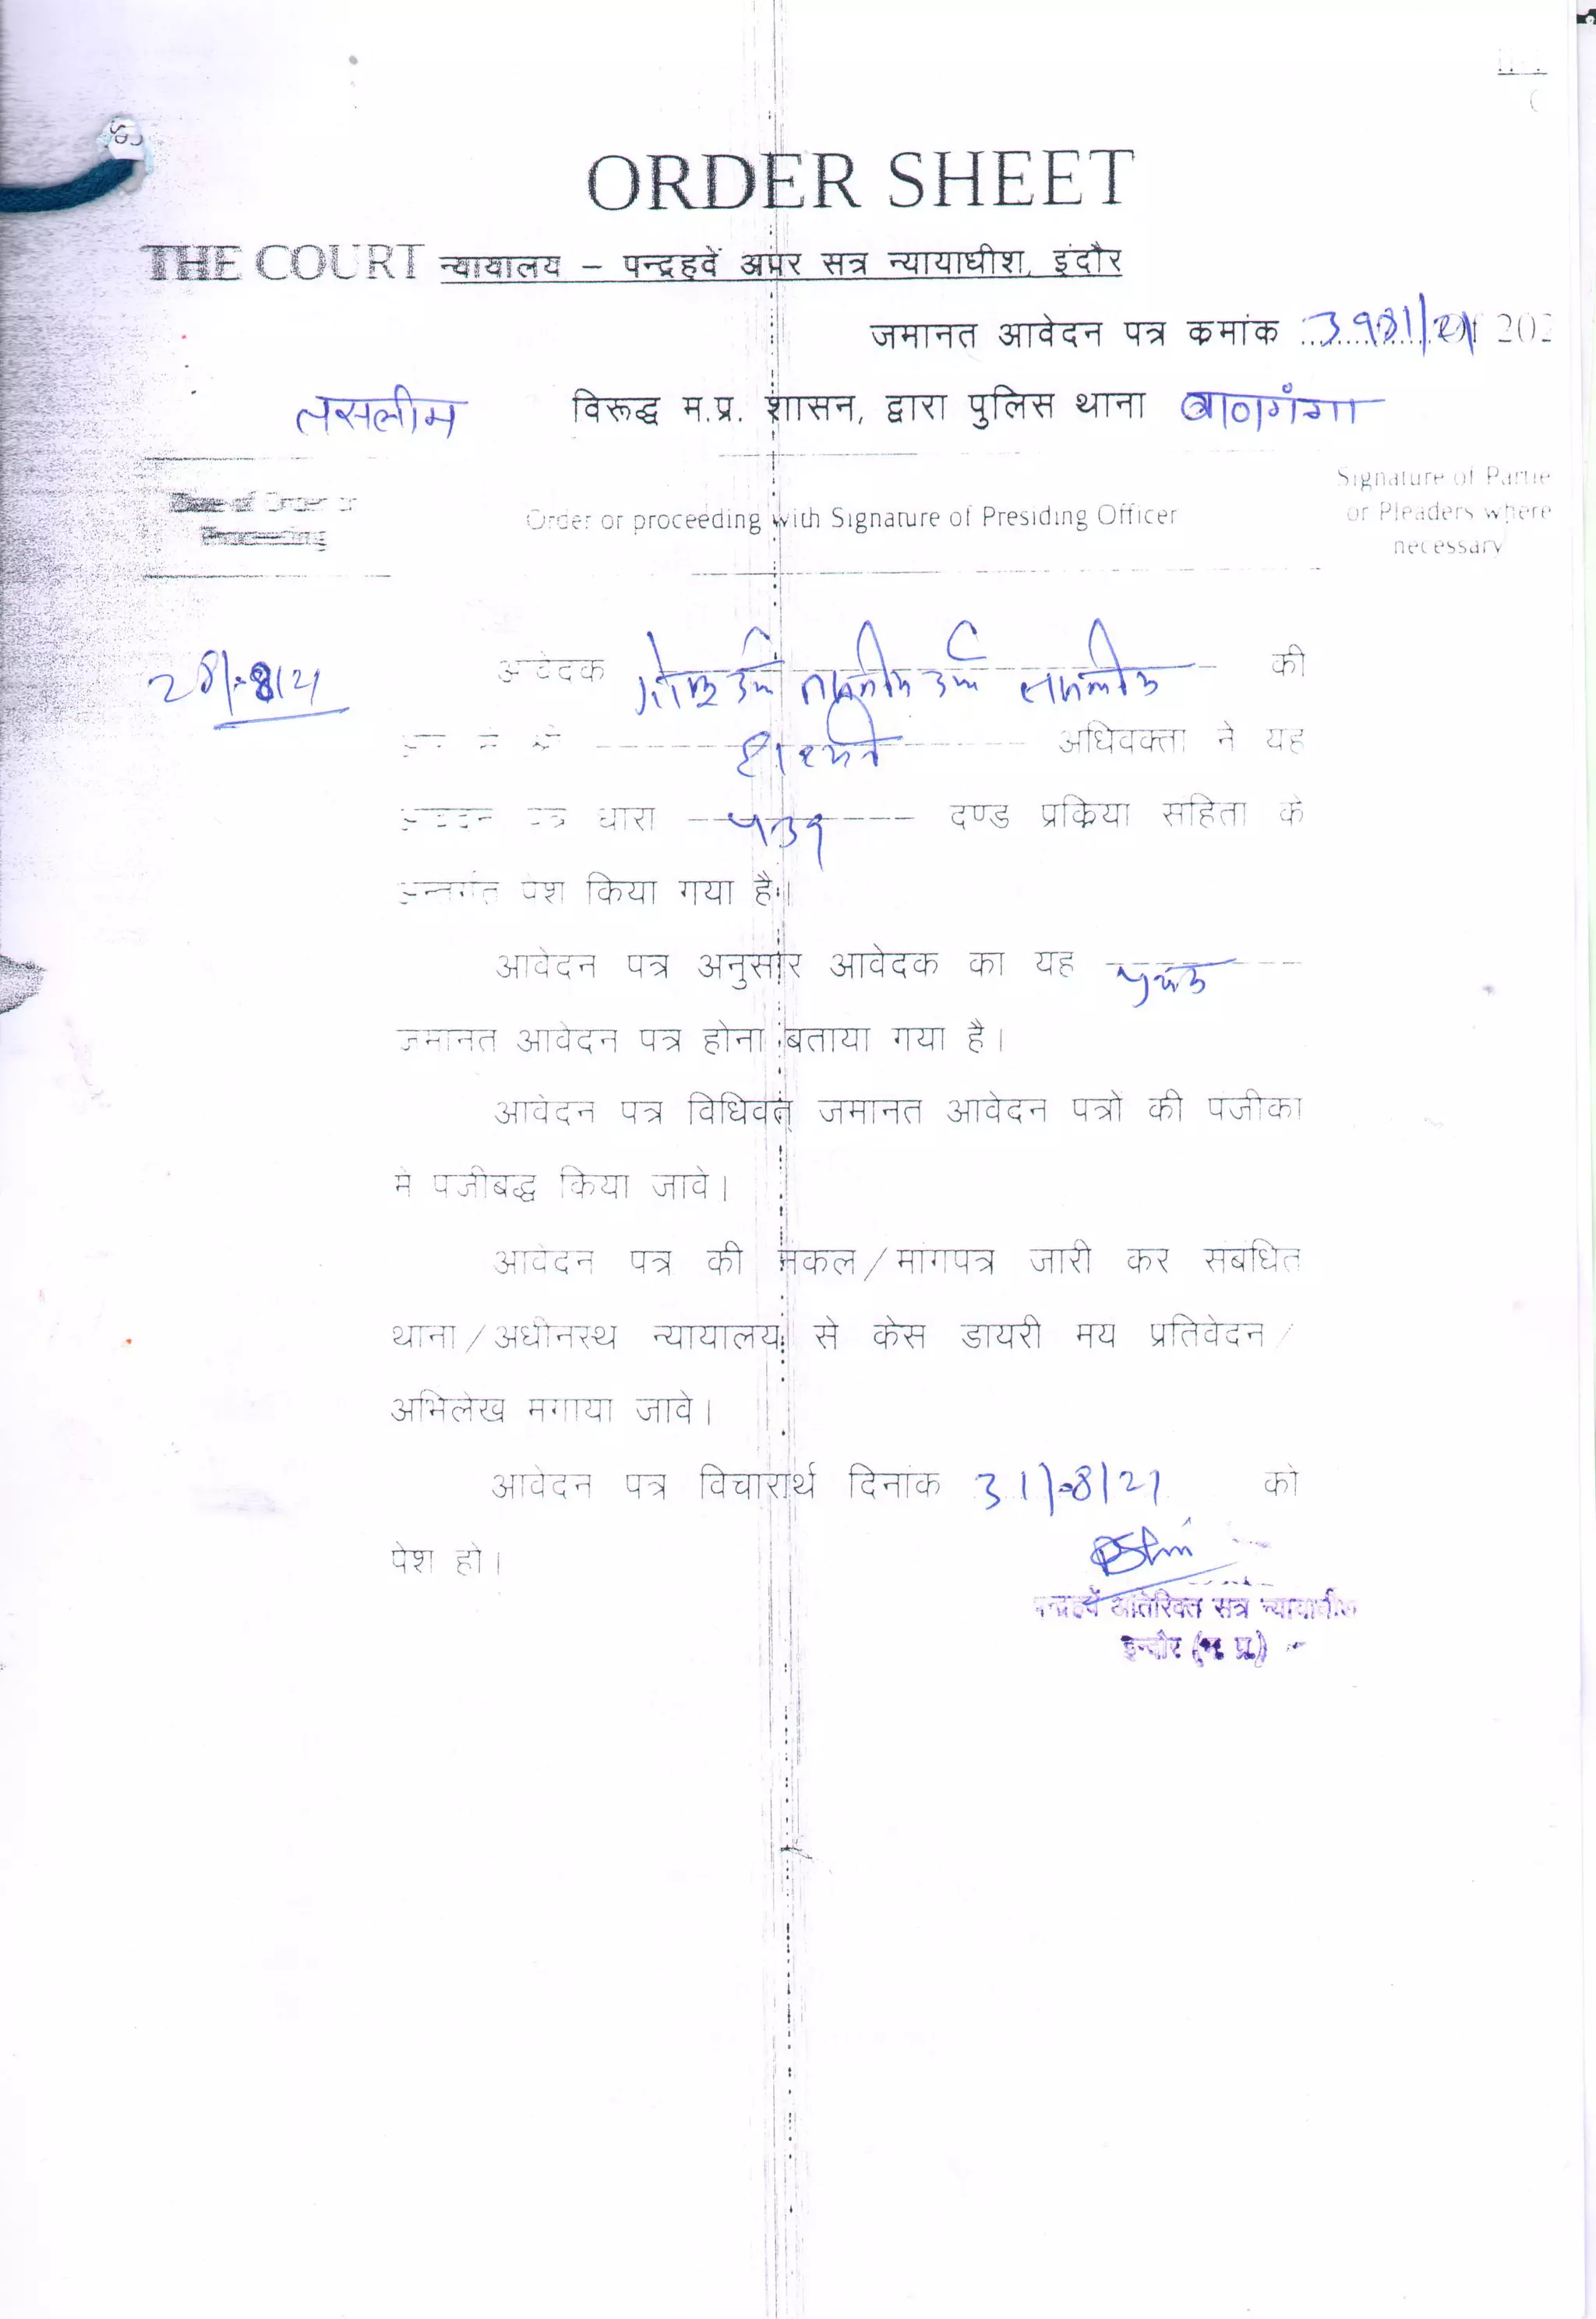 ORDER SHEET
THE COURT न्यायालय – पन्द्रहवें अपर सत्र न्यायाधीश, इंदौर
जमानत आवेदन पत्र कमांक 202
तसलीम विरूद्ध म.प्र. शासन, द्वारा पुलिस थाना बाणगंगा
Signature of Partie
Order or proceeding with Signature of Presiding Officer
or Pleaders where
Proceeding
necessary
28/-8/21
आवेदक उर्फ उर्फ की
अधिवक्ता ने यह
आवेदन पत्र धारा ५३९ दण्ड प्रकिया संहिता के
अन्तर्गत पेश किया गया है।
आवेदन पत्र अनुसार आवेदक का यह
जमानत आवेदन पत्र होना बताया गया है।
आवेदन पत्र विधिवत् जमानत आवेदन पत्रों की पंजीका
में पंजीबद्ध किया जावे।
आवेदन पत्र की नकल/मांगपत्र जारी कर संबंधित
थाना/अधीनस्थ न्यायालय से केस डायरी मय प्रतिवेदन/
अभिलेख मंगाया जावे।
आवेदन पत्र विचारार्थ दिनांक 31/-8/21 को
पेश हो।
पन्द्रहवें अतिरिक्त सत्र न्यायाधीश
इन्दौर (म. प्र.)